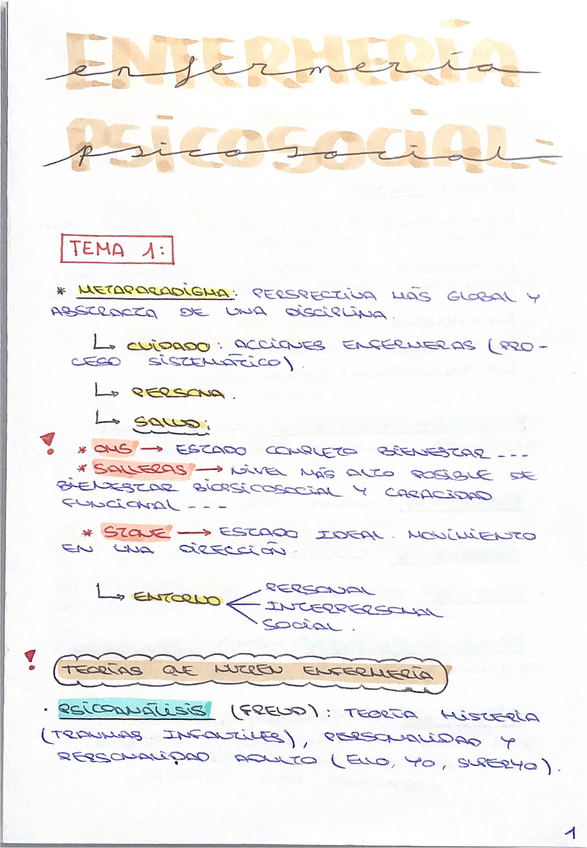 ENFERMERÍA
enfermería
PSICOSOCIAL
psicosocial
TEMA 1:
* METAPARADIGMA: PERSPECTIVA MÁS GLOBAL Y
ABSTRACTA DE UNA DISCIPLINA.
↳ CUIDADO: ACCIONES ENFERMERAS (PRO-
CESO SISTEMÁTICO).
↳ PERSONA.
↳ SALUD:
! * OMS → ESTADO COMPLETO BIENESTAR ---
* SALLERAS → NIVEL MÁS ALTO POSIBLE DE
BIENESTAR BIOPSICOSOCIAL Y CAPACIDAD
FUNCIONAL ---
* STONE → ESTADO IDEAL. MOVIMIENTO
EN UNA DIRECCIÓN.
↳ ENTORNO
PERSONAL
INTERPERSONAL
SOCIAL.
! TEORÍAS QUE NUTREN ENFERMERÍA
· PSICOANÁLISIS (FREUD): TEORÍA HISTERIA
(TRAUMAS INFANTILES), PERSONALIDAD Y
PERSONALIDAD ADULTO (ELLO, YO, SUPERYO).
1